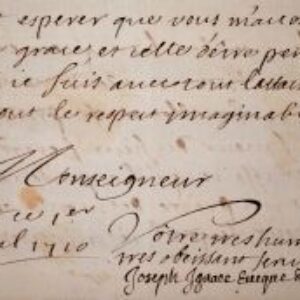 esperer que vous m'acco
grace et celle d'etre per
ie suis avec tout l'atta
out le respect imaginab
Monseigneur
ce 1er
il 1710
Votre tres hum
tres obeissant serui
Joseph Ignace Eueque